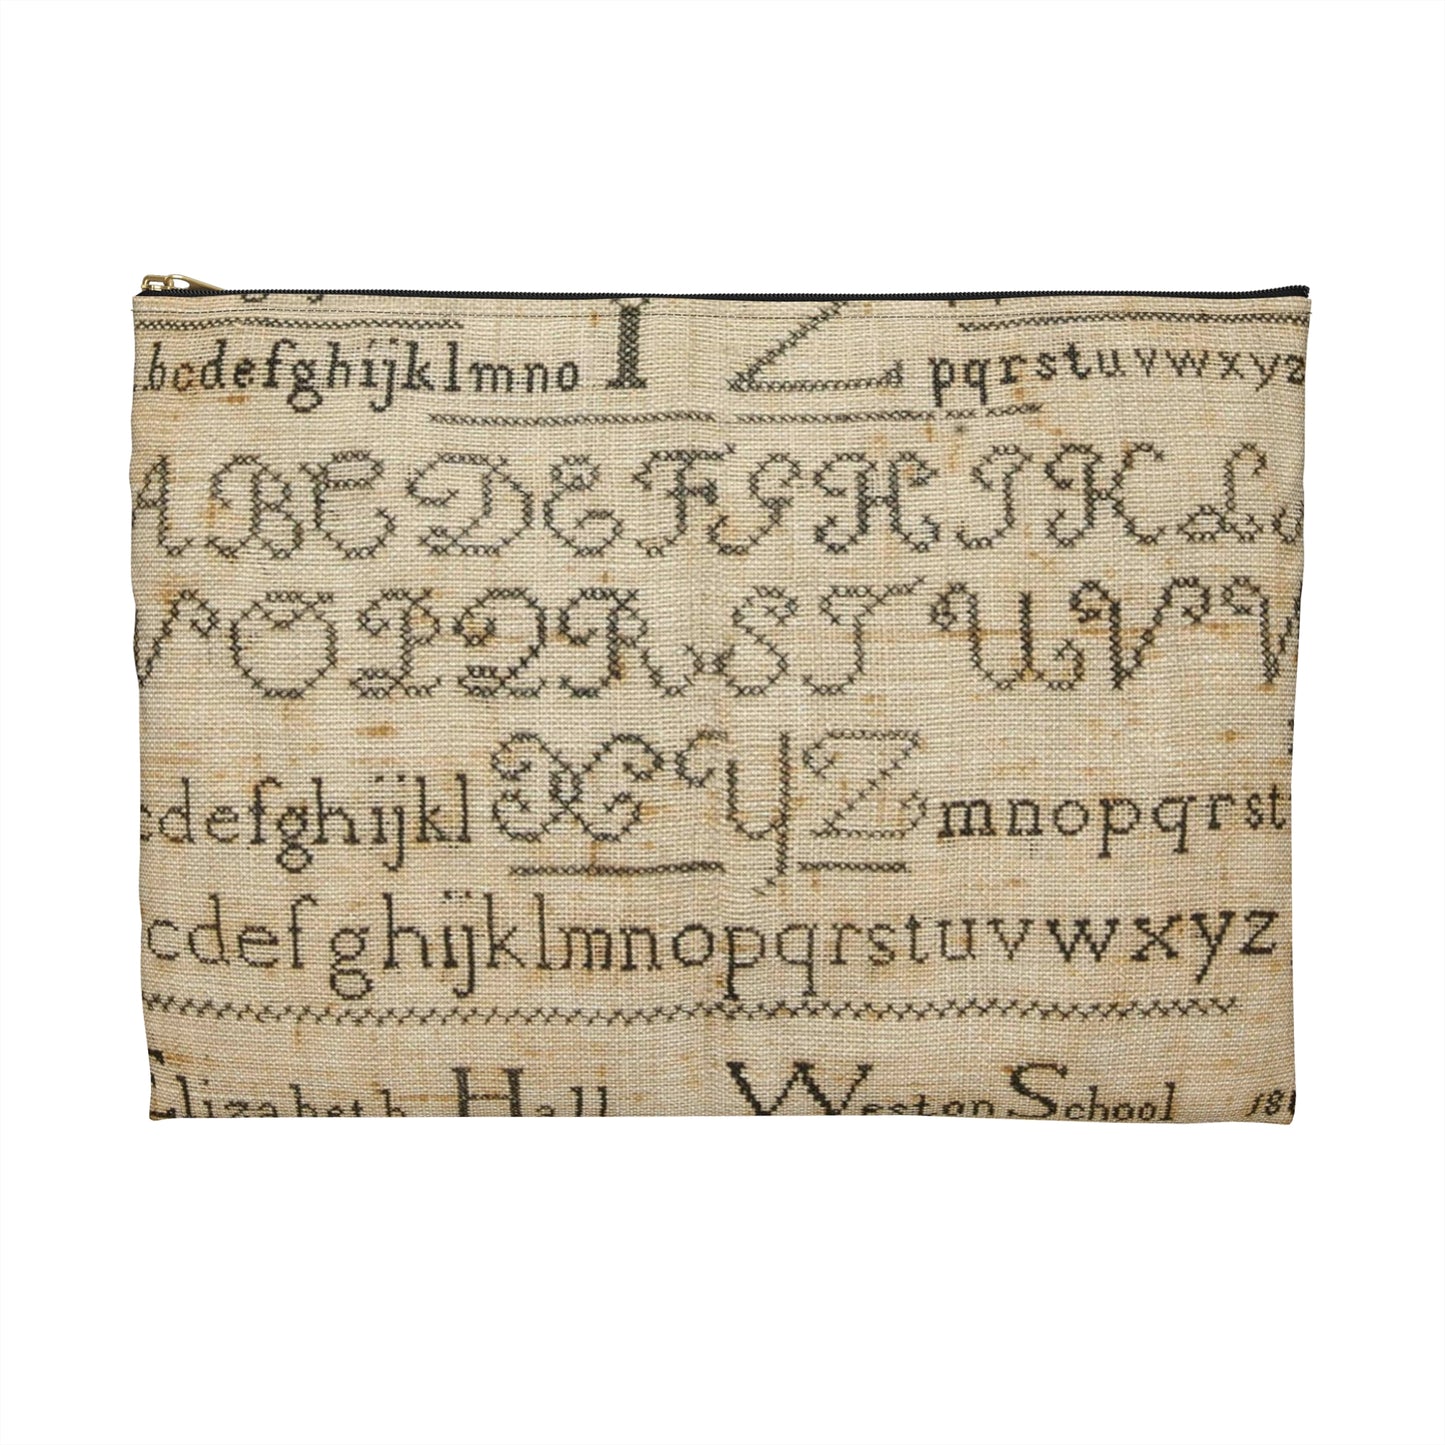 bcdefghijklmno YZ pqrstuvwxyz
ABCDEFGHIKL
VOPQRSTUVW
cdefghijkl XYZ mnopqrst
cdefghijklmnopqrstuvwxyz
Elizabeth Hall Weston School